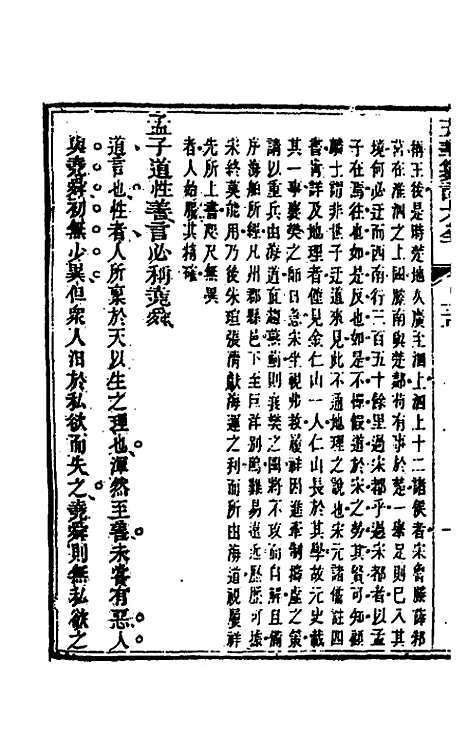 稱王後是時楚地久廣至泗上泗上十二諸侯者宋魯滕薛邾
莒在淮泗之上國滕南與楚鄰苟有事於楚一舉足則已入其
境何必迂而西南行三百五十餘里過宋都乎過宋都者以孟
子在焉往也如是反也如是不憚假道於宋之勞其賢可知顧
麟士謂非世子迂道來見此不通地理之說也宋元諸儒註四
書肯詳及地理者僅見金仁山一人仁山長於其學故元史載
其一事襄樊之師日急宋坐視弗救履祥因進牽制擣虛之策
請以重兵由海道直趨燕薊則襄樊之圍將不攻而自解且備
序海舶所經凡州郡縣邑下至巨洋別隝難易遠近歷歷可據
宋終莫能用乃後朱瑄張清獻海運之利而所由海道視履祥
先所上書咫尺無異
者人始服其精確
孟子道性善言必稱堯舜
道言也性者人所稟於天以生之理也渾然至善未嘗有惡人
與堯舜初無少異但衆人汨於私欲而失之堯舜則無私欲之